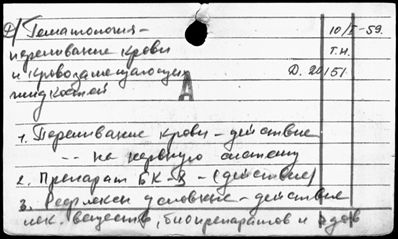 2) Гематология - 10/I-59.
переливание крови Т.Н.
и кровозамещающих Д. 20151
жидкостей
А
1. Переливание крови - действие
-- на нервную систему
2. Препарат БК-8 - (действие)
3. Рефлексы условные - действие
лек. веществ, биопрепаратов и ядов